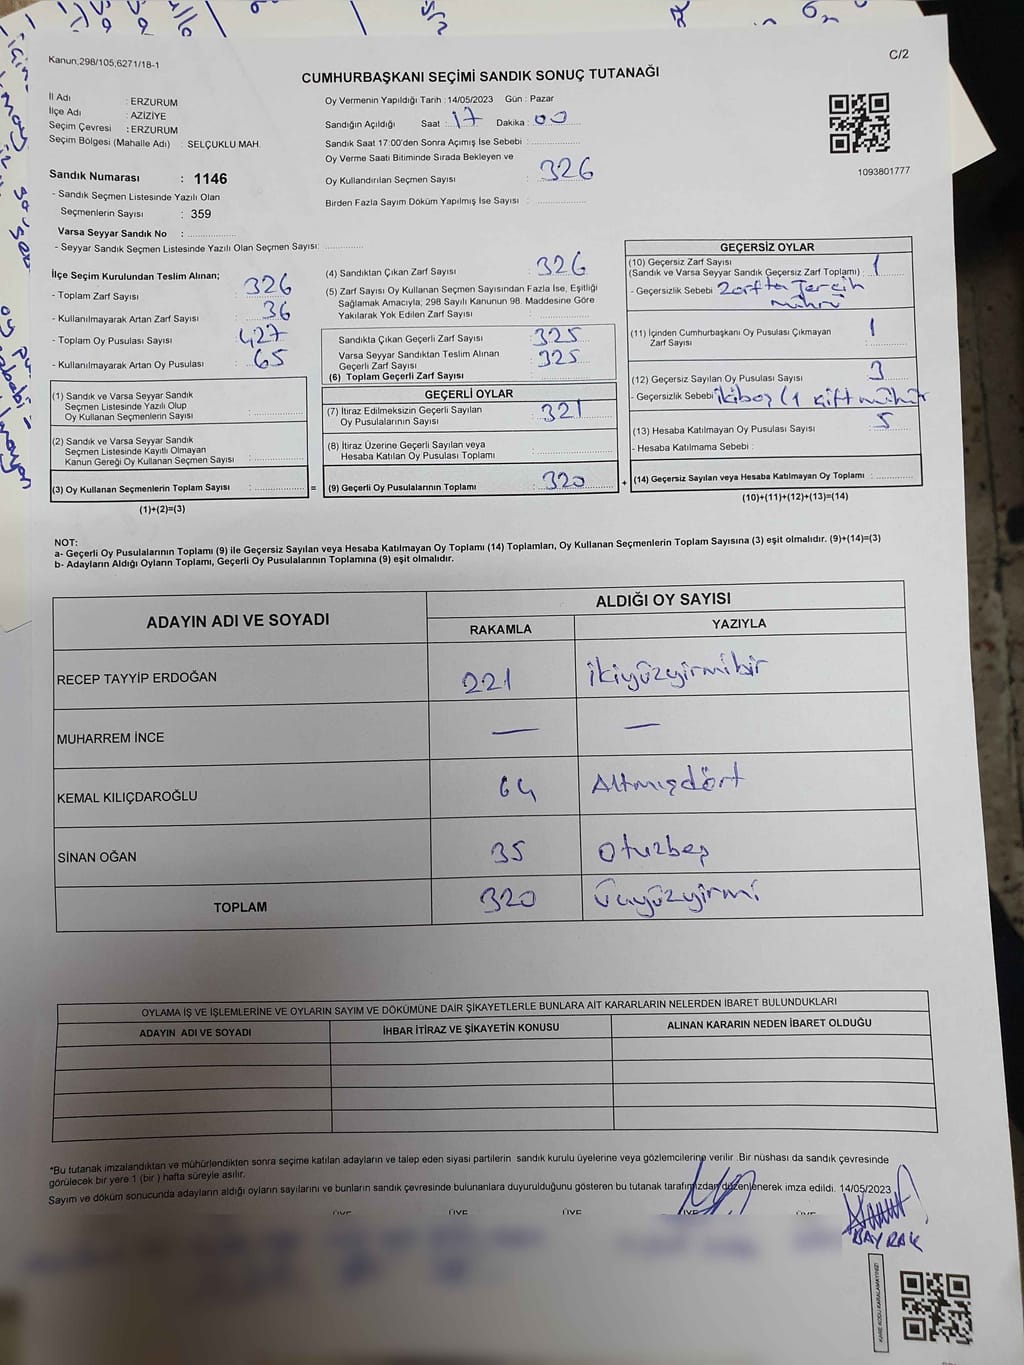 Kanun;298/105;6271/18-1
C/2
CUMHURBAŞKANI SEÇİMİ SANDIK SONUÇ TUTANAĞI
İl Adı : ERZURUM
İlçe Adı : AZİZİYE
Seçim Çevresi : ERZURUM
Seçim Bölgesi (Mahalle Adı) : SELÇUKLU MAH.
Sandık Numarası : 1146
- Sandık Seçmen Listesinde Yazılı Olan
Seçmenlerin Sayısı : 359
Varsa Seyyar Sandık No :
- Seyyar Sandık Seçmen Listesinde Yazılı Olan Seçmen Sayısı:
Oy Vermenin Yapıldığı Tarih : 14/05/2023 Gün : Pazar
Sandığın Açıldığı Saat : 17 Dakika : 00
Sandık Saat 17:00'den Sonra Açımış İse Sebebi :
Oy Verme Saati Bitiminde Sırada Bekleyen ve
Oy Kullandırılan Seçmen Sayısı : 326
Birden Fazla Sayım Döküm Yapılmış İse Sayısı :
1093801777
İlçe Seçim Kurulundan Teslim Alınan;
- Toplam Zarf Sayısı : 326
- Kullanılmayarak Artan Zarf Sayısı : 36
- Toplam Oy Pusulası Sayısı : 427
- Kullanılmayarak Artan Oy Pusulası : 65
(1) Sandık ve Varsa Seyyar Sandık
Seçmen Listesinde Yazılı Olup
Oy Kullanan Seçmenlerin Sayısı :
(2) Sandık ve Varsa Seyyar Sandık
Seçmen Listesinde Kayıtlı Olmayan
Kanun Gereği Oy Kullanan Seçmen Sayısı :
(3) Oy Kullanan Seçmenlerin Toplam Sayısı : =
(1)+(2)=(3)
(4) Sandıktan Çıkan Zarf Sayısı : 326
(5) Zarf Sayısı Oy Kullanan Seçmen Sayısından Fazla İse, Eşitliği
Sağlamak Amacıyla; 298 Sayılı Kanunun 98. Maddesine Göre
Yakılarak Yok Edilen Zarf Sayısı :
Sandıkta Çıkan Geçerli Zarf Sayısı : 325
Varsa Seyyar Sandıktan Teslim Alınan
Geçerli Zarf Sayısı : 325
(6) Toplam Geçerli Zarf Sayısı :
GEÇERLİ OYLAR
(7) İtiraz Edilmeksizin Geçerli Sayılan
Oy Pusulalarının Sayısı : 321
(8) İtiraz Üzerine Geçerli Sayılan veya
Hesaba Katılan Oy Pusulası Toplamı :
(9) Geçerli Oy Pusulalarının Toplamı : 320 +
GEÇERSİZ OYLAR
(10) Geçersiz Zarf Sayısı
(Sandık ve Varsa Seyyar Sandık Geçersiz Zarf Toplamı) : 1
- Geçersizlik Sebebi : Zarfta Tercih
mührü
(11) İçinden Cumhurbaşkanı Oy Pusulası Çıkmayan
Zarf Sayısı : 1
(12) Geçersiz Sayılan Oy Pusulası Sayısı : 3
- Geçersizlik Sebebi : iki boş (1 çift mühür
(13) Hesaba Katılmayan Oy Pusulası Sayısı : 5
- Hesaba Katılmama Sebebi :
(14) Geçersiz Sayılan veya Hesaba Katılmayan Oy Toplamı :
(10)+(11)+(12)+(13)=(14)
NOT:
a- Geçerli Oy Pusulalarının Toplamı (9) ile Geçersiz Sayılan veya Hesaba Katılmayan Oy Toplamı (14) Toplamları, Oy Kullanan Seçmenlerin Toplam Sayısına (3) eşit olmalıdır. (9)+(14)=(3)
b- Adayların Aldığı Oyların Toplamı, Geçerli Oy Pusulalarının Toplamına (9) eşit olmalıdır.
ADAYIN ADI VE SOYADI ALDIĞI OY SAYISI
RAKAMLA YAZIYLA
RECEP TAYYİP ERDOĞAN 221 ikiyüzyirmibir
MUHARREM İNCE — —
KEMAL KILIÇDAROĞLU 64 Altmışdört
SİNAN OĞAN 35 Otuzbeş
TOPLAM 320 Üçyüzyirmi
OYLAMA İŞ VE İŞLEMLERİNE VE OYLARIN SAYIM VE DÖKÜMÜNE DAİR ŞİKAYETLERLE BUNLARA AİT KARARLARIN NELERDEN İBARET BULUNDUKLARI
ADAYIN ADI VE SOYADI İHBAR İTİRAZ VE ŞİKAYETİN KONUSU ALINAN KARARIN NEDEN İBARET OLDUĞU
*Bu tutanak imzalandıktan ve mühürlendikten sonra seçime katılan adayların ve talep eden siyasi partilerin sandık kurulu üyelerine veya gözlemcilerine verilir .Bir nüshası da sandık çevresinde
görülecek bir yere 1 (bir ) hafta süreyle asılır.
Sayım ve döküm sonucunda adayların aldığı oyların sayılarını ve bunların sandık çevresinde bulunanlara duyurulduğunu gösteren bu tutanak tarafımızdan düzenlenerek imza edildi. 14/05/2023
ÜYE ÜYE ÜYE ÜYE ÜYE
BAYRAK
KARE KODU KARALAMAYINIZ!